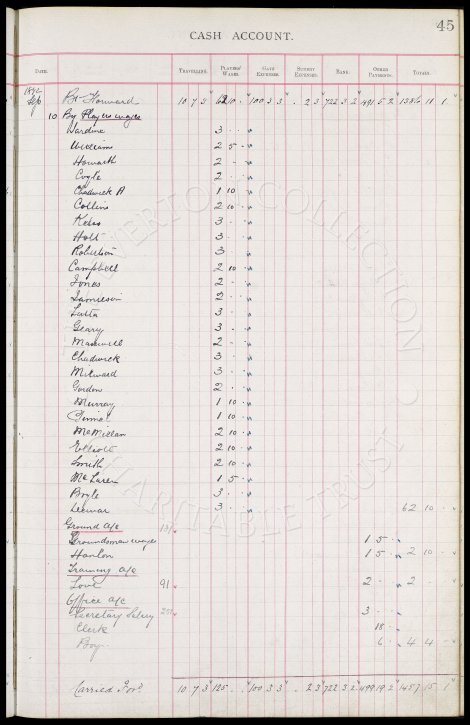 45
CASH ACCOUNT.
DATE. TRAVELLING. PLAYERS' WAGES. GATE EXPENSES. SUNDRY EXPENSES. BANK. OTHER PAYMENTS. TOTALS.
1892
Sep Bt Forward 10 7 3 62 10 - 100 3 3 - 2 3 722 3 2 491 5 2 1386 11 1
10 By Players wages
Jardine 3 - -
Williams 2 5 -
Howarth 2 -
Coyle 2 - -
Chadwick A 1 10
Collins 2 10 -
Kelso 3 - -
Holt 3 -
Robertson 3 -
Campbell 2 10
Jones 2 -
Jamieson 2 - -
Latta 3 -
Geary 3 - -
Maxwell 2 -
Chadwick 3 - -
Milward 3 - -
Gordon 2 - -
Murray 1 10 -
1 10 -
McMillan 2 10 -
Elliott 2 10 -
Smith 2 10 -
McLaren 1 5 -
Boyle 3 - -
3 - - 62 10 -
Ground a/c
Groundsman wages 1 5 -
Hanlon 1 5 - 2 10 -
Training a/c
Love 91 2 - - 2 - -
Office a/c
Secretary Salary 3 - -
Clerk 18 -
Boy 6 - 4 4 -
Carried For'd 10 7 3 125 - - 100 3 3 - 2 3 722 3 2 499 19 2 1457 15 1
EVERTON COLLECTION
CHARITABLE TRUST